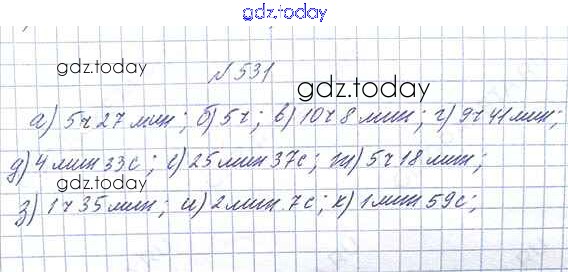 gdz.today
gdz.today
№ 531
gdz.today
а) 5 ч 27 мин; б) 5 ч; в) 10 ч 8 мин; г) 9 ч 41 мин;
д) 4 мин 33 с; е) 25 мин 37 с; ж) 5 ч 18 мин;
gdz.today
з) 1 ч 35 мин; и) 2 мин 7 с; к) 1 мин 59 с;